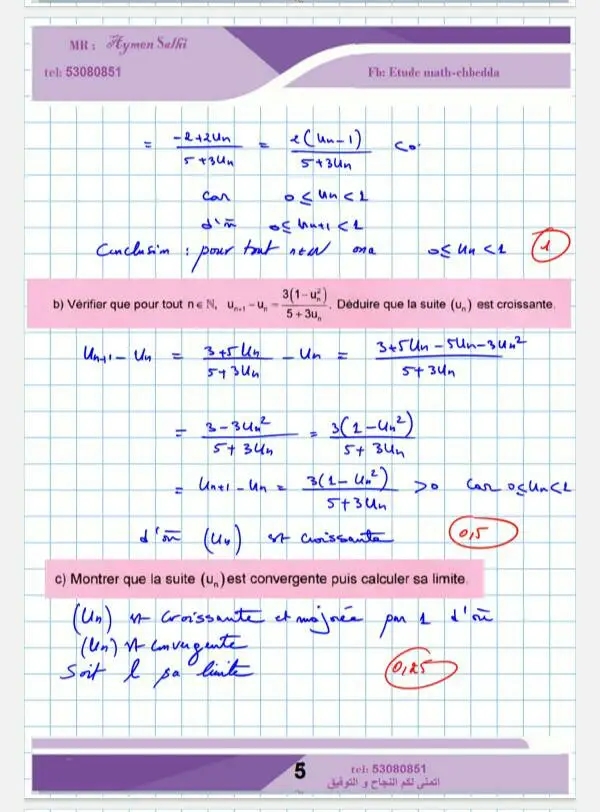 MR : Aymen Salhi
tel: 53080851 Fb: Etude math-chbedda
= (-2+2Un)/(5+3Un) = 2(Un-1)/(5+3Un) <0
car 0 ≤ Un < 1
d'où 0 ≤ Un+1 < 1
Conclusion : pour tout n∈ℕ on a 0 ≤ Un < 1 1
b) Vérifier que pour tout n ∈ ℕ, uₙ₊₁ - uₙ = 3(1-uₙ²)/(5+3uₙ). Déduire que la suite (uₙ) est croissante.
Un+1 - Un = (3+5Un)/(5+3Un) - Un = (3+5Un-5Un-3Un²)/(5+3Un)
= (3-3Un²)/(5+3Un) = 3(1-Un²)/(5+3Un)
= Un+1 - Un = 3(1-Un²)/(5+3Un) >0 car 0≤Un<1
d'où (Un) est croissante 0,5
c) Montrer que la suite (uₙ) est convergente puis calculer sa limite.
(Un) est croissante et majorée par 1 d'où
(Un) est convergente
Soit l sa limite 0,25
5 tel: 53080851
اتمنى لكم النجاح و التوفيق